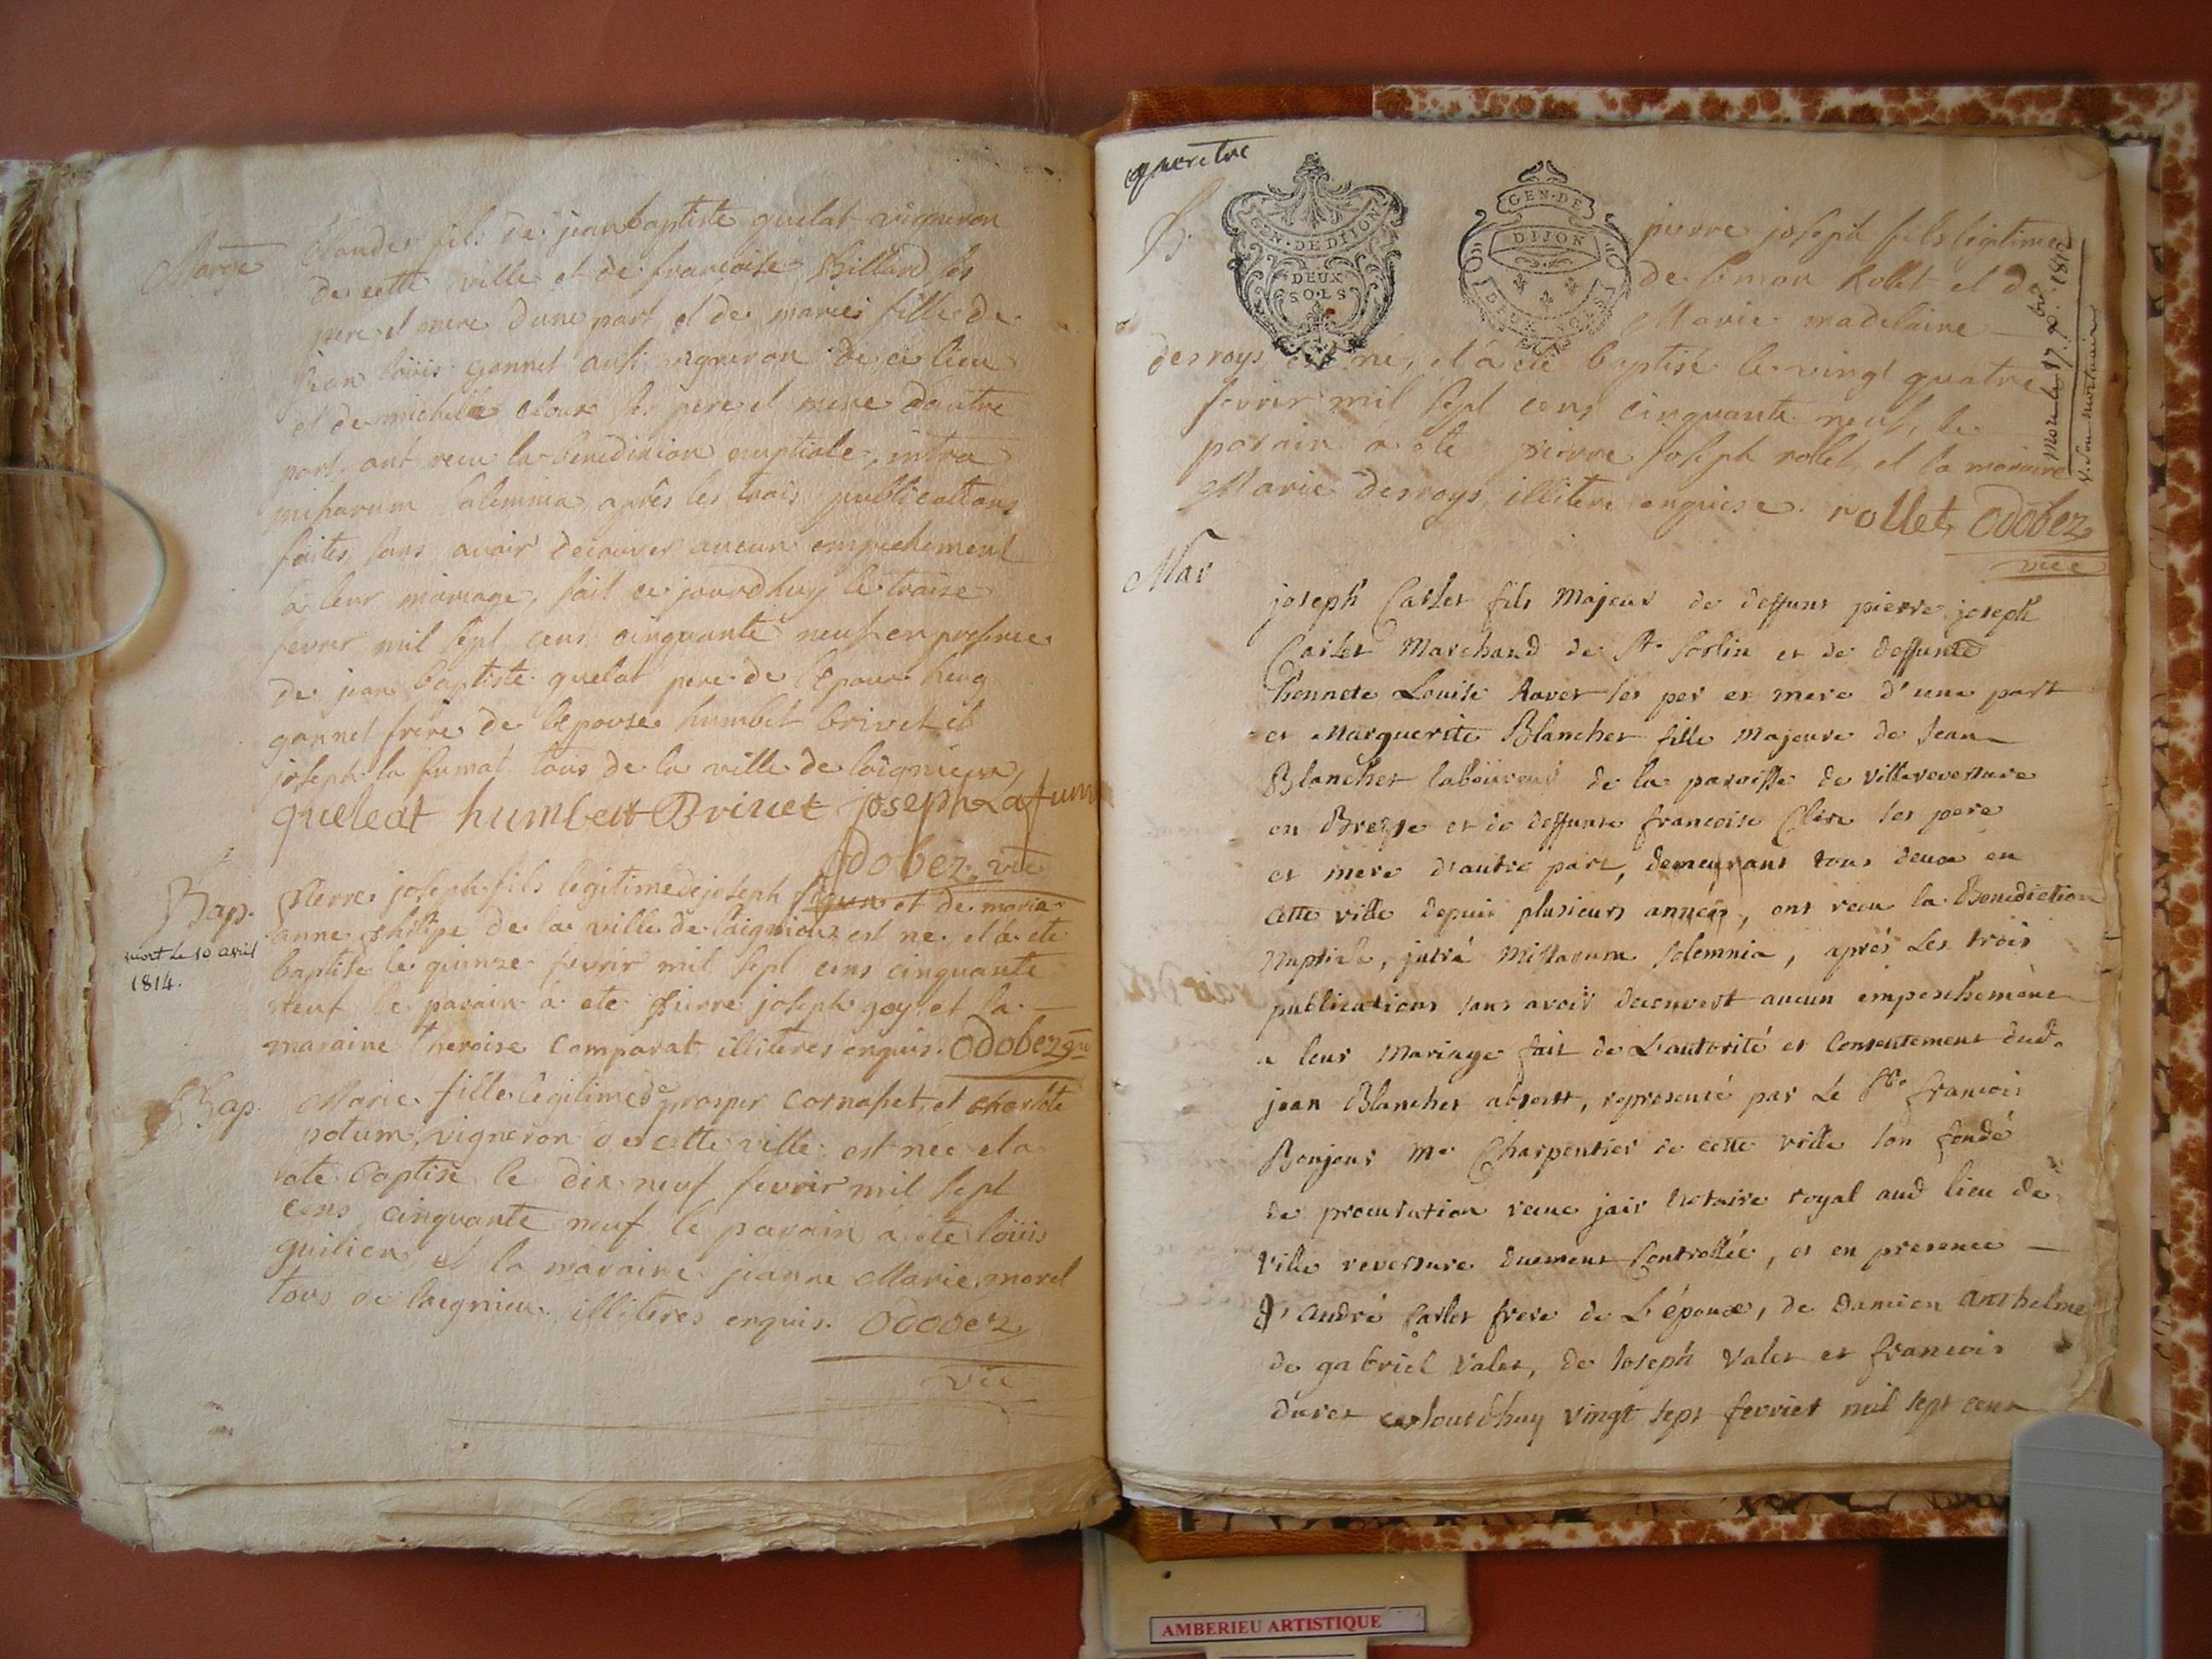 Marge
Claude fils de jean baptiste quelat vigneron
de cette ville et de francoise Billard ses
pere et mere dune part et de marie fille de
jean loüis gonnet ausi vigneron de ce lieu
et de michelle ses pere et mere dautre
part ont recu la benediction nuptiale, intra
missarum solemnia, après les trois publications
faites sans avoir decouver aucun empechement
à leur mariage, fait ce jourdhuy le traize
fevrer mil sept cens cinquante neuf en presence
de jean baptiste quelat pere de l'epoux
gonnet frère de l'epouse humbet brivet et
joseph la fumat tous de la ville de laignieux
queleat humbert Brivet joseph Lafum
Odobez vic
Bap.
mort le 10 avril
1814.
Pierre joseph fils legitime de joseph et de marie
anne philipe de la ville de laignieux est né et à ete
baptise le quinze fevrir mil sept cens cinquante
neuf le parain à ete pierre joseph goy et la
maraine Comparat illiteres enquis. Odobez
Bap.
Marie fille legitime de prosper cornaset, et charlote
potum, vigneron de cette ville est née et a
ete baptise le dix neuf fevrir mil sept
cens cinquante neuf le parain à ete loüis
guilien, et la maraine jeanne Marie morel
tous de laignieu illiteres enquis. Odobez
vic
quatre
B.
GEN·DE DIJON
DEUX
SOLS
GEN·DE
DIJON
DEUX SOLS
pierre joseph fils legitime
de simon Rolet et de
Marie madelaine
desroys est né, et à ete baptisé le vingt quatre
fevrir mil sept cens cinquante neuf, le
parain a ete pierre joseph rollet et la maraine
Marie desroys, illitere enquise. rollet Odobez
vice
Mort le 17 1812
v. son mortuaire
Mar
joseph Carlet fils Majeur de deffunt pierre joseph
Carlet Marchand de St Sorlin et de deffunte
honnete Louise Ravet ses per et mere d'une part
et Marguerite Blanchet fille Majeure de Jean
Blanchet laboureur de la paroisse de villereversure
en Bresse et de deffunte francoise Clere ses pere
et mere d'autre part, demeurans tous deux en
cette ville depuis plusieurs années, ont recu la Benediction
Nuptiale, jntrá Missarum solemnia, aprés Les trois
publications sans avoir decouvert aucun empeschement
a leur Mariage fait de L'autorité et Consentement dud.
jean Blanchet absent, representé par Le Sr. francois
Bonjour Me Charpentier de cette ville son fondé
de procuration recue jair Notaire royal aud lieu de
ville reversure duement Controllée, et en presence
d'André Carlet frere de L'époux, de Damien Anthelme
de gabriel valet, de Joseph valet et francois
duret cejourdhuy vingt sept fevrier mil sept cent
AMBERIEU ARTISTIQUE